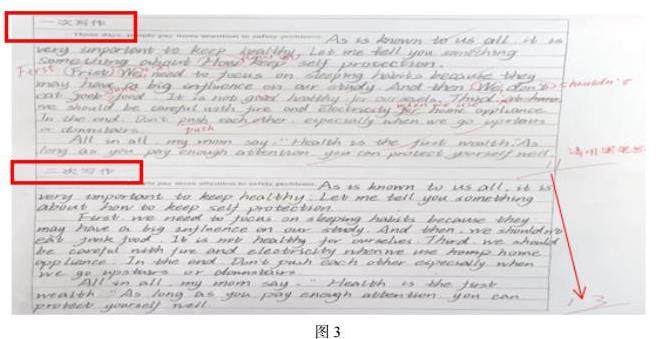 一次写作
These days, people pay more attention to safety problems. As is known to us all, it is
very important to keep healthy. Let me tell you something
something about How keep self protection.
First (Frist) We need to focus on sleeping habits because they
may have a big influence on our study. And then (We don't) shouldn't
eat junk food. It is not good healthy for ourselves. Third, at home
we should be careful with fire and electricity for home appliance.
In the end. Don't push each other especially when we go upstairs
or downstairs. push
All in all, my mom say. "Health is the first wealth. As
long as you pay enough attention you can protect yourself well
11
二次写作
people pay more attention to safety problems. As is known to us all, it is
very important to keep healthy. Let me tell you something
about how to keep self protection.
First, we need to focus on sleeping habits because they
may have a big influence on our study. And then, we shouldn't
eat junk food. It is not healthy for ourselves. Third, we should
be careful with fire and electricity when we use home
appliance. In the end. Don't push each other especially when
we go upstairs or downstairs.
All in all, my mom say. "Health is the first
wealth. "As long as you pay enough attention you can
protect yourself well
13
图3